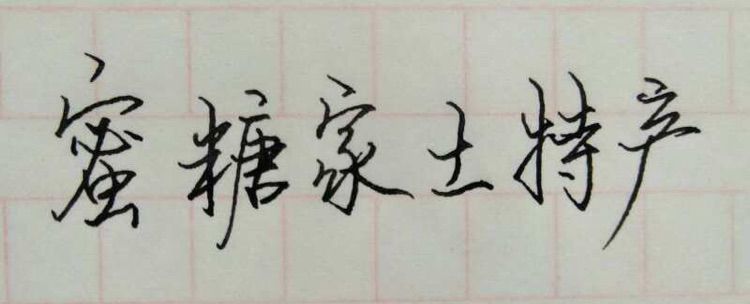 蜜糖家土特产